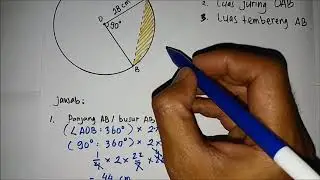 28 cm
O
90°
B
2. Luas juring OAB
3. Luas tembereng AB
Jawab:
1. Panjang AB / busur AB
(∠AOB : 360°) × 2
(90° : 360°) × 2
1/4 × 2 × 22/7 ×
= 44 cm